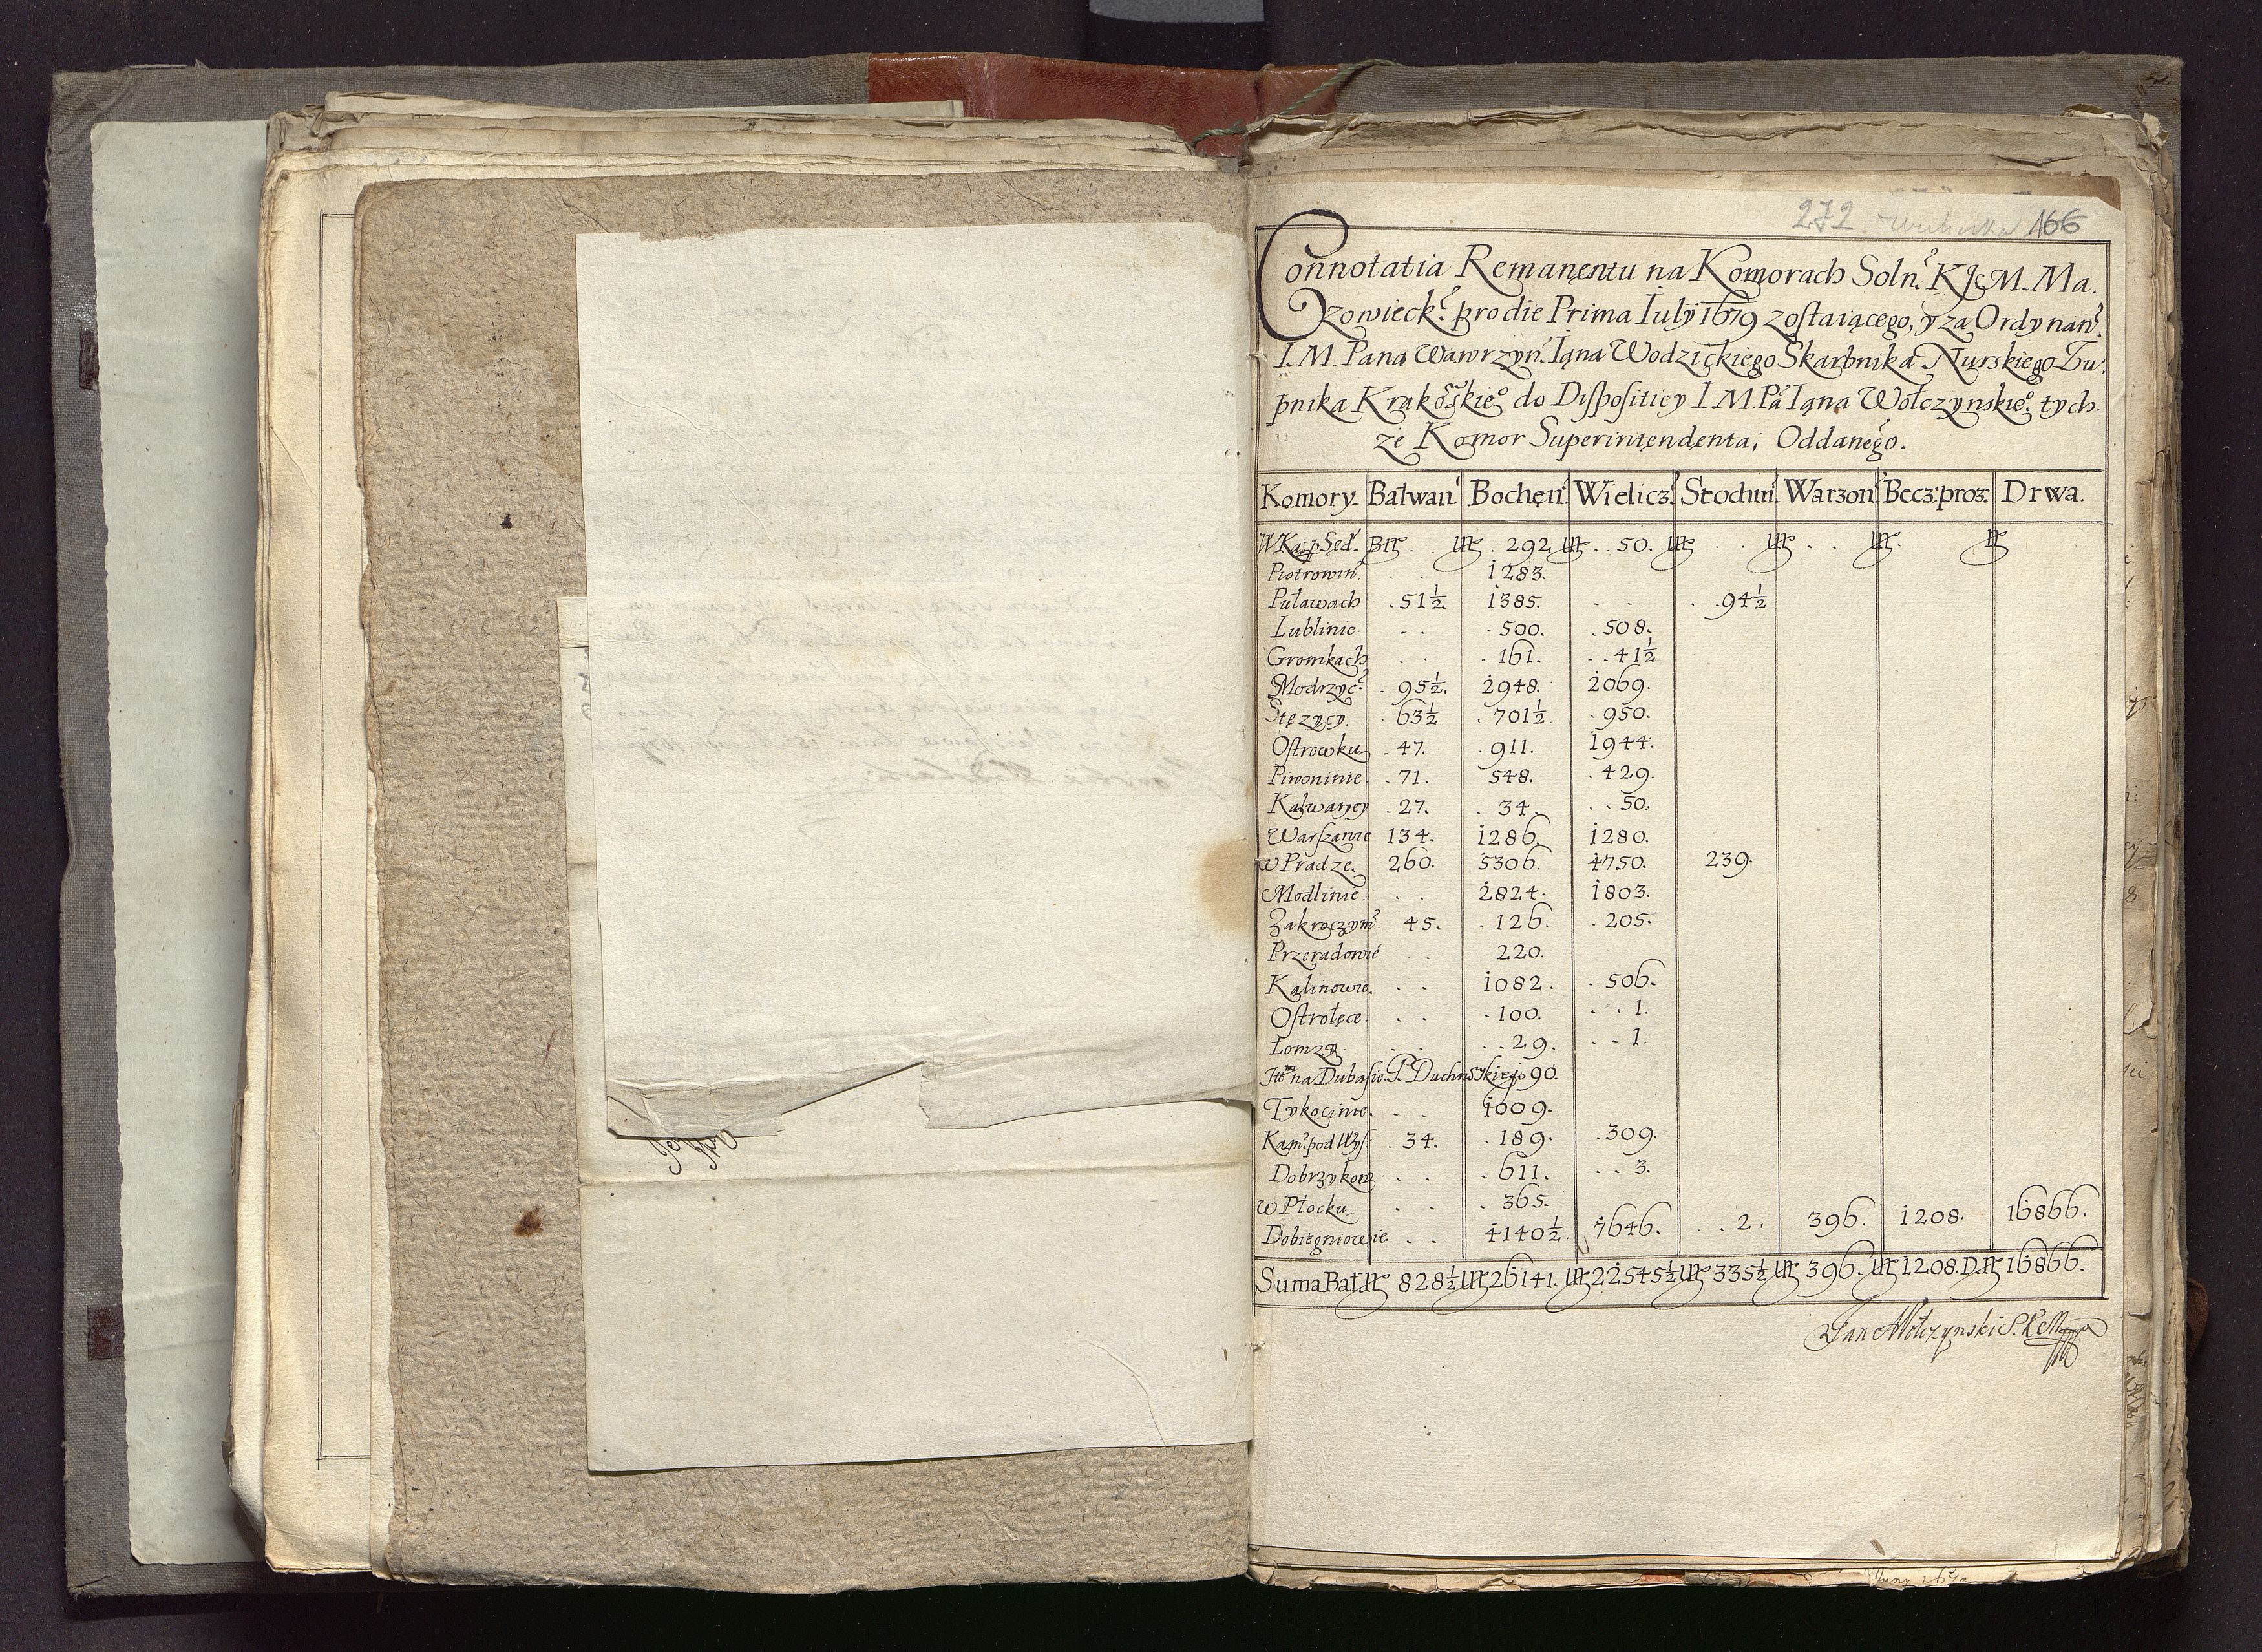 272. 166
Connotatia Remanentu na Komorach Soln. KJeM. Ma.
zowieck. pro die Prima Iuly 1679 zostaiącego, y za Ordynan.
I. M. Pana Wawrzyn. Iana Wodzickiego Skarbnika Nurskiego Żu.
pnika Krakoskieo do Dispositiey I. M. Pa Iana Wolczynskieo tych.
że Komor Superintendenta, Oddanego.
Komory. Bałwan Bochen Wielicz. Stochm Warzon Becz: proz: Drwa.
W Ka: p Sęd. Bn . . 292. . . 50. . . . .
Piotrowin . . 1283.
Puławach . 51½ 1385. . . . . 94½
Lublinie . . . 500. . 508.
Gronkach . . . 161. . . 41½
Modrzyc. . 95½. 2948. 2069.
Stęzycy. . 63½ . 701½ . 950.
Ostrowku . 47. . 911. 1944.
Piwoninie . 71. 548. . 429.
Kalwaryey . 27. . 34. . . 50.
Warszawie 134. 1286. 1280.
w Pradze. 260. 5306. 4750. 239.
Modlinie . . 2824. 1803.
Zakroczym. 45. . 126. . 205.
Przeradowie . . 220.
Kalinowie. . . 1082. . 506.
Ostrołęce. . . . 100. . . 1.
Łomzy . . . . 29. . . 1.
Itm na Dubasie P. Duchnowskiego 90.
Tykocinie. . . 1009.
Kam. pod Wys. . 34. . 189. . 309.
Dobrzykow . . . 611. . . 3.
w Płocku . . . 365.
Dobiegniowie . . 4140½. 7646. . . 2. 396. 1208. 16866.
Suma Bał. 828½ 26141. 22545½ 335½ 396. 1208. D. 16866.
Jan Wolczynski S.